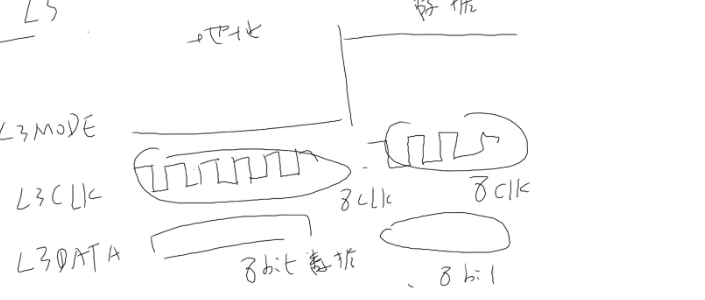 L3
地址
数据
L3MODE
L3CLK
8clk
8clk
L3DATA
8bit数据
8bit